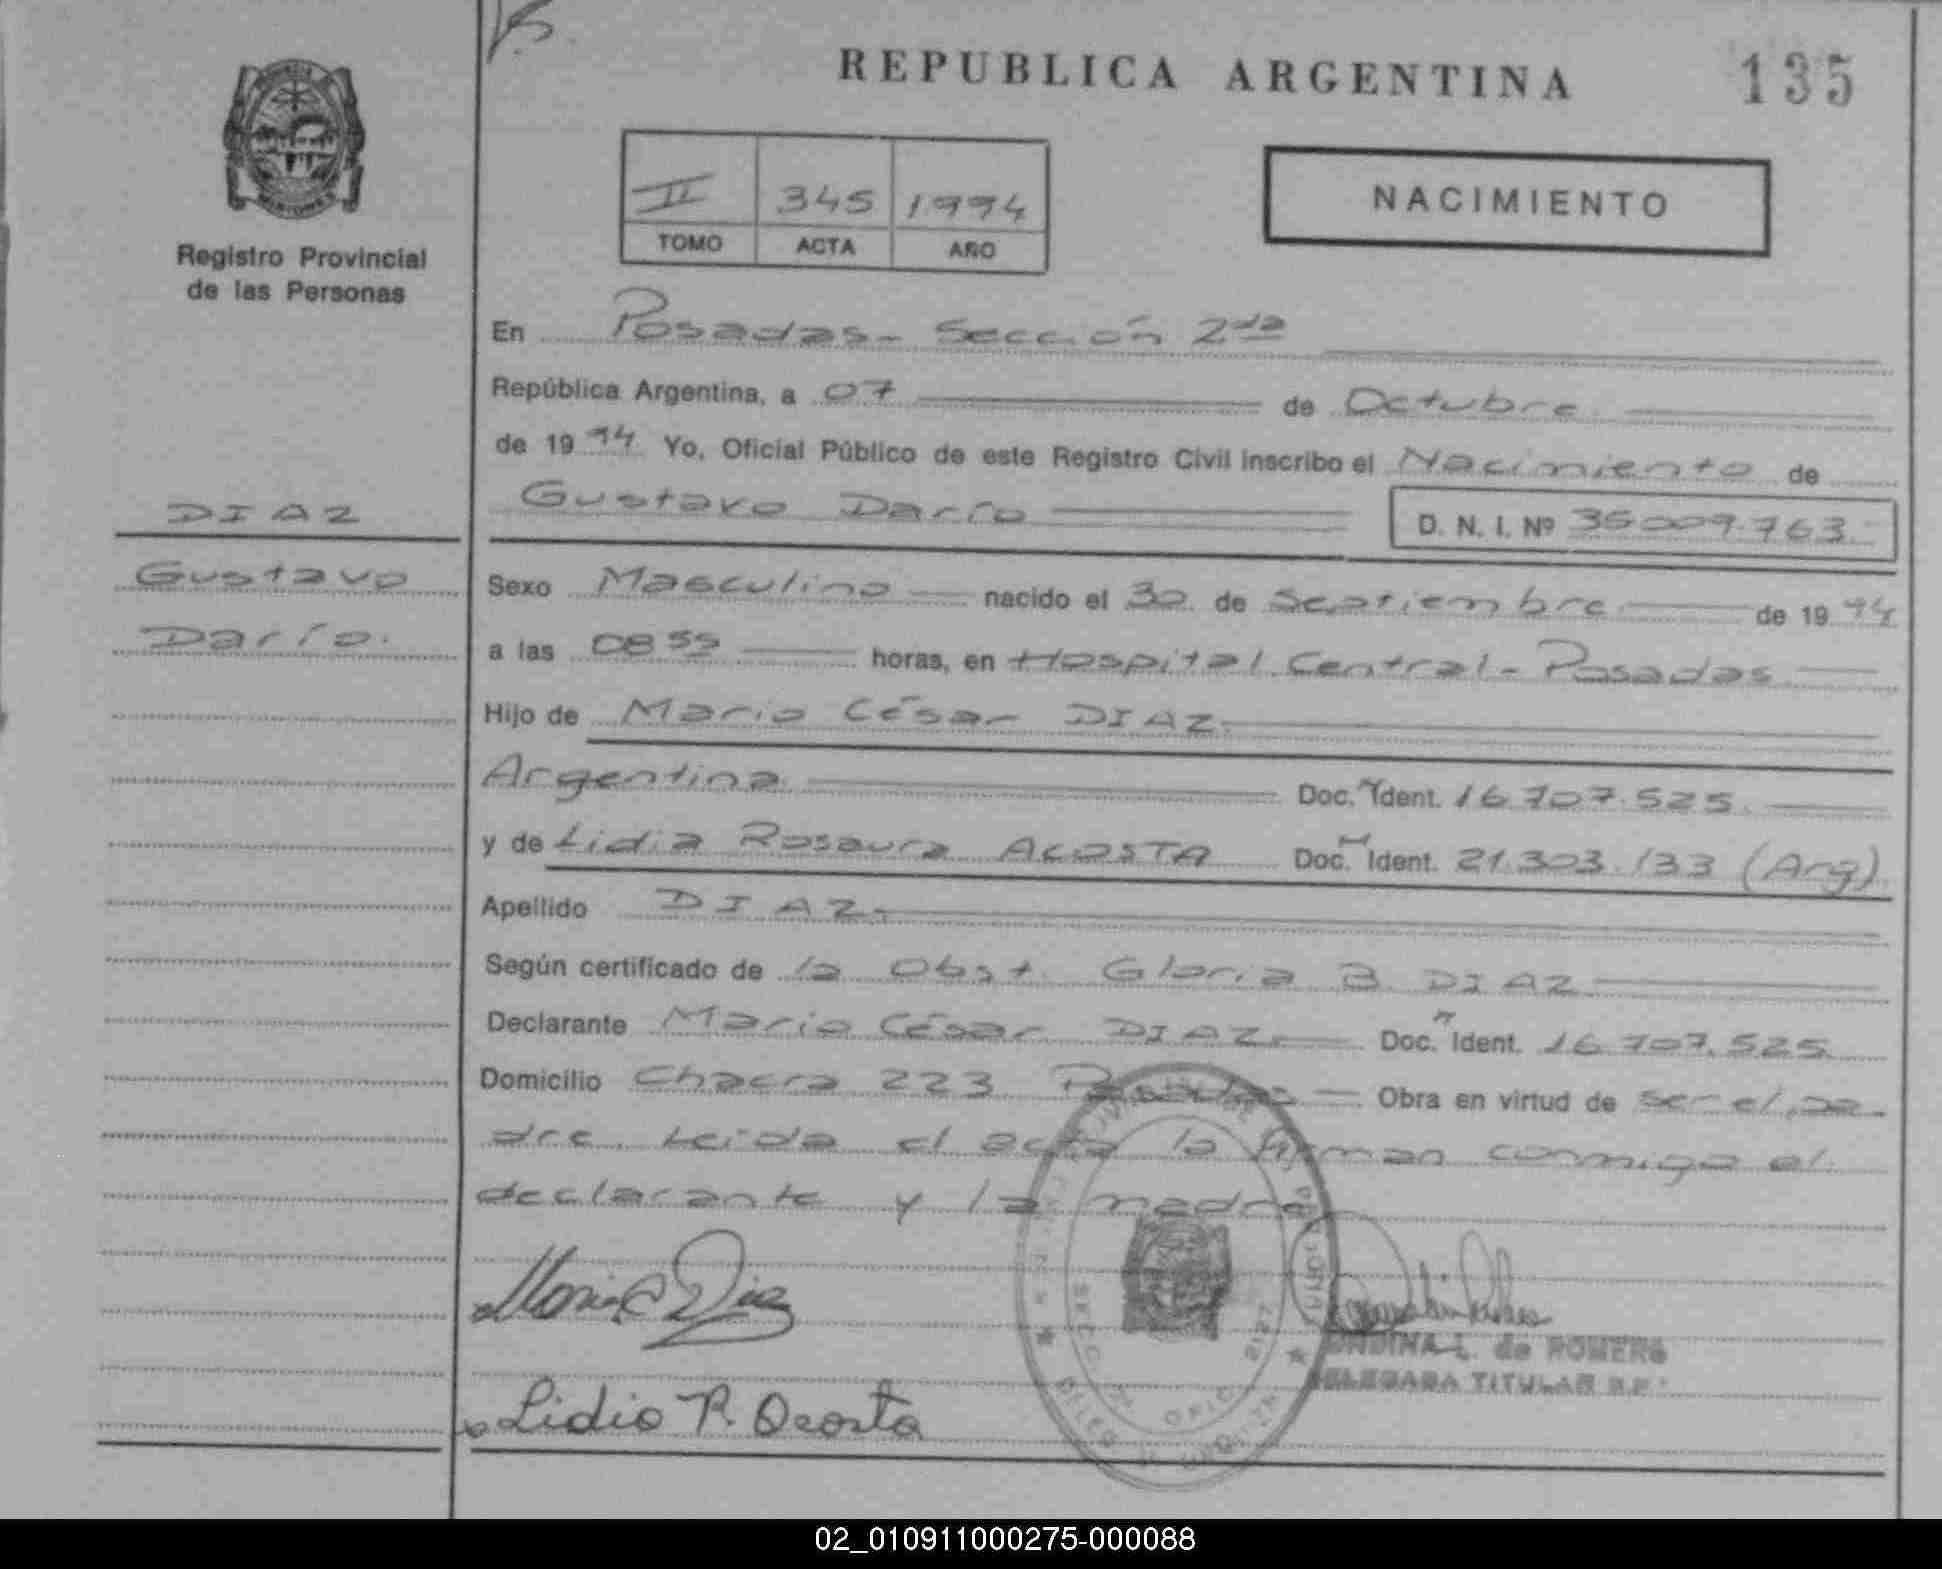 REPUBLICA ARGENTINA
135
Registro Provincial
de las Personas
II 345 1994
TOMO ACTA AÑO
NACIMIENTO
En Posadas - Sección 2da
República Argentina, a 07 de Octubre
de 1994 Yo, Oficial Público de este Registro Civil inscribo el Nacimiento de
Gustavo Darío
D. N. I. Nº 35009.763
DIAZ
Gustavo
Darío.
Sexo Masculino nacido el 30 de Septiembre de 1994
a las 08 55 horas, en Hospital Central - Posadas
Hijo de Mario César DIAZ
Argentina Doc. Ident. 16.707.525
y de Lidia Rosaura ACOSTA Doc. Ident. 21.303.133 (Arg)
Apellido DIAZ
Según certificado de la Obst. Gloria B. DIAZ
Declarante Mario César DIAZ Doc. Ident. 16.707.525
Domicilio Chacra 223 Posadas Obra en virtud de ser el pa
dre. Leida el acta la firman conmigo el
declarante y la madre
Mario C Diaz
Lidia R. Acosta
L. de ROMERO
DELEGADA TITULAR
02_010911000275-000088